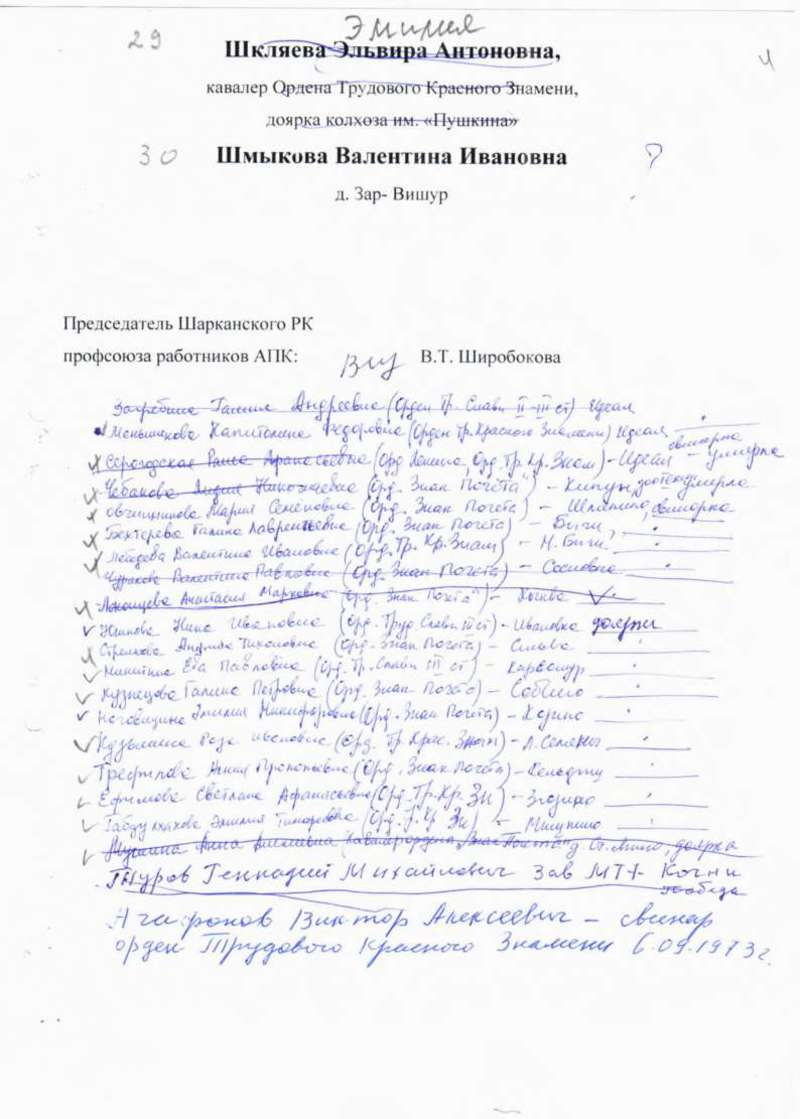 Эмилия
29
Шкляева Эльвира Антоновна,
4
кавалер Ордена Трудового Красного Знамени,
доярка колхоза им. «Пушкина»
30 Шмыкова Валентина Ивановна ?
д. Зар- Вишур
Председатель Шарканского РК
профсоюза работников АПК: В.Т. Широбокова
Загребина Галина Андреевна (Орден Тр. Славы II-III ст) Идеал
Меньшикова Капитолина Федоровна (Орден Тр. Красного Знамени) Идеал свинарка
Серогодская Раиса Афанасьевна (Орд Ленина, Орд. Тр. Кр. Знам) - Идеал - умерла
Чебакова Лидия Николаевна (Орд. Знак Почета") - Кипун, умерла
Овчинникова Мария Семеновна (Орд. Знак Почета) - свинарка
Бехтерева Галина Лаврентьевна (Орд. Знак Почета) - Быги
Лебедева Валентина Ивановна (Орд. Тр. Кр. Знам) - Н. Быги
Чуракова Валентина Павловна (Орд. Знак Почета) - Сосновка
Анастасия Марковна (Орд. Знак Почета")
Нина Ивановна (Орд. Труд. Славы III ст) - Ивановка доярки
Стрелкова Тихоновна (Орд. Знак Почета) - Сильва
Никитина Ева Павловна (Орд. Тр. Славы III ст) -
Кузнецова Галина Петровна (Орд. Знак Почета) -
Наговицина Эмилия Никифоровна (Орд. Знак Почета) -
Кузьмина Роза Ивановна (Орд. Тр. Крас. Знам) -
Трефилова Прокопьевна (Орд. Знак Почета) - Кельдыш
Ефимова Светлана Афанасьевна (Орд. Тр. Кр. Зн) - Зюзино
Габдулхакова Эмилия Тимофеевна (Орд. Т. Кр Зн) - Мишкино
Анна (кавалер ордена "Знак Почета" доярка
Туров Геннадий Михайлович зав МТФ
победа
Агафонов Виктор Алексеевич - свинар
орден Трудового Красного Знамени 6.09.1973г.